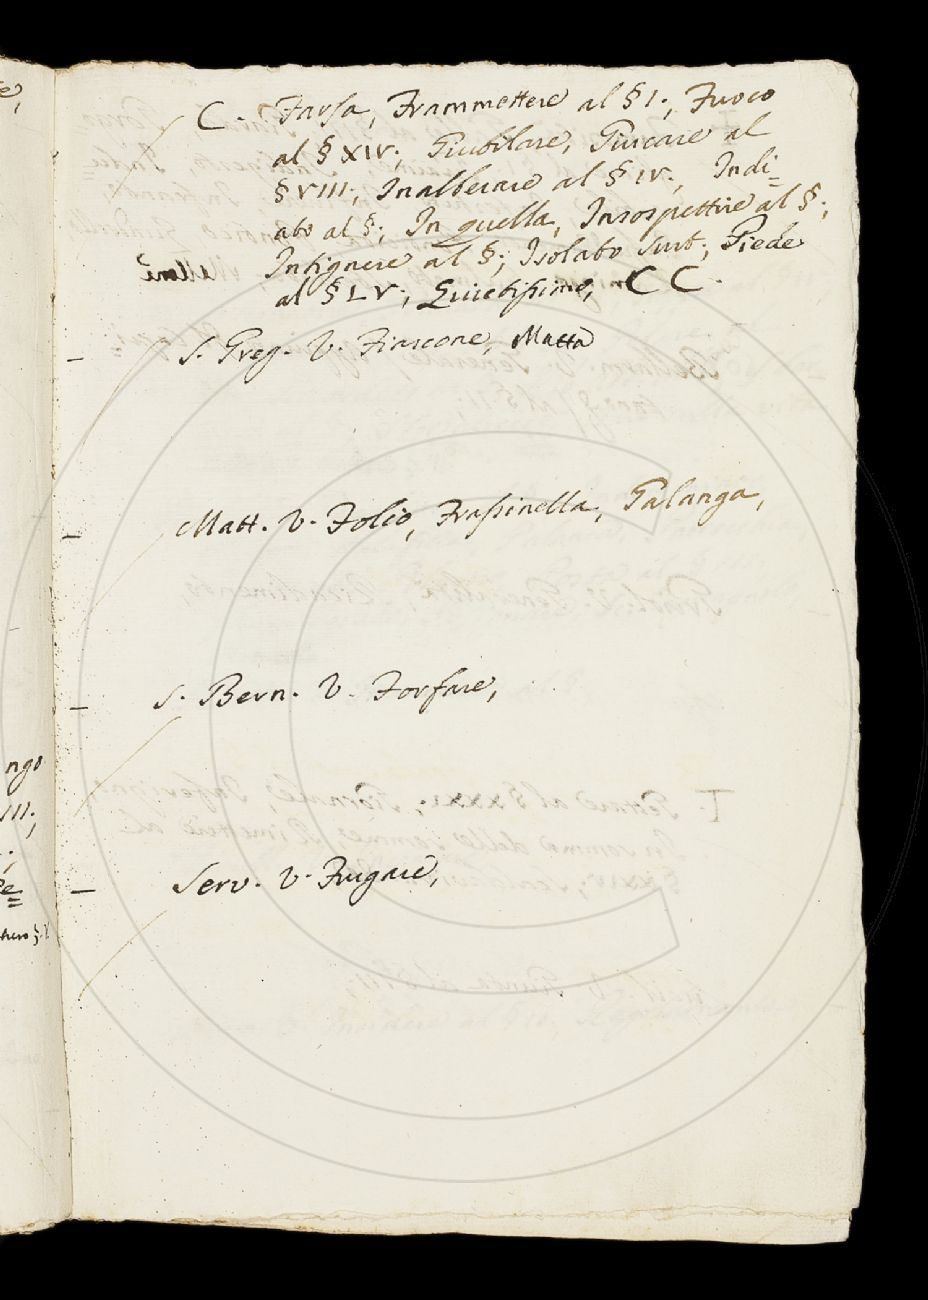 C. Farsa, Frammettere al § I.; Fuoco
al § XIV; Giubilare, Giucare al
§ VIII; Inalberare al § IV; Indi=
ato al §; In quella, Insospettire al §;
Intignere al §; Isolato sust; Piede
al § LV; Quietissimo, CC.
S. Greg. V. Fiascone, Matta
Matt. V. Folio, Frassinella, Galanga,
S. Bern. V. Forfare,
Serv. V. Frugare,
ngo
III;